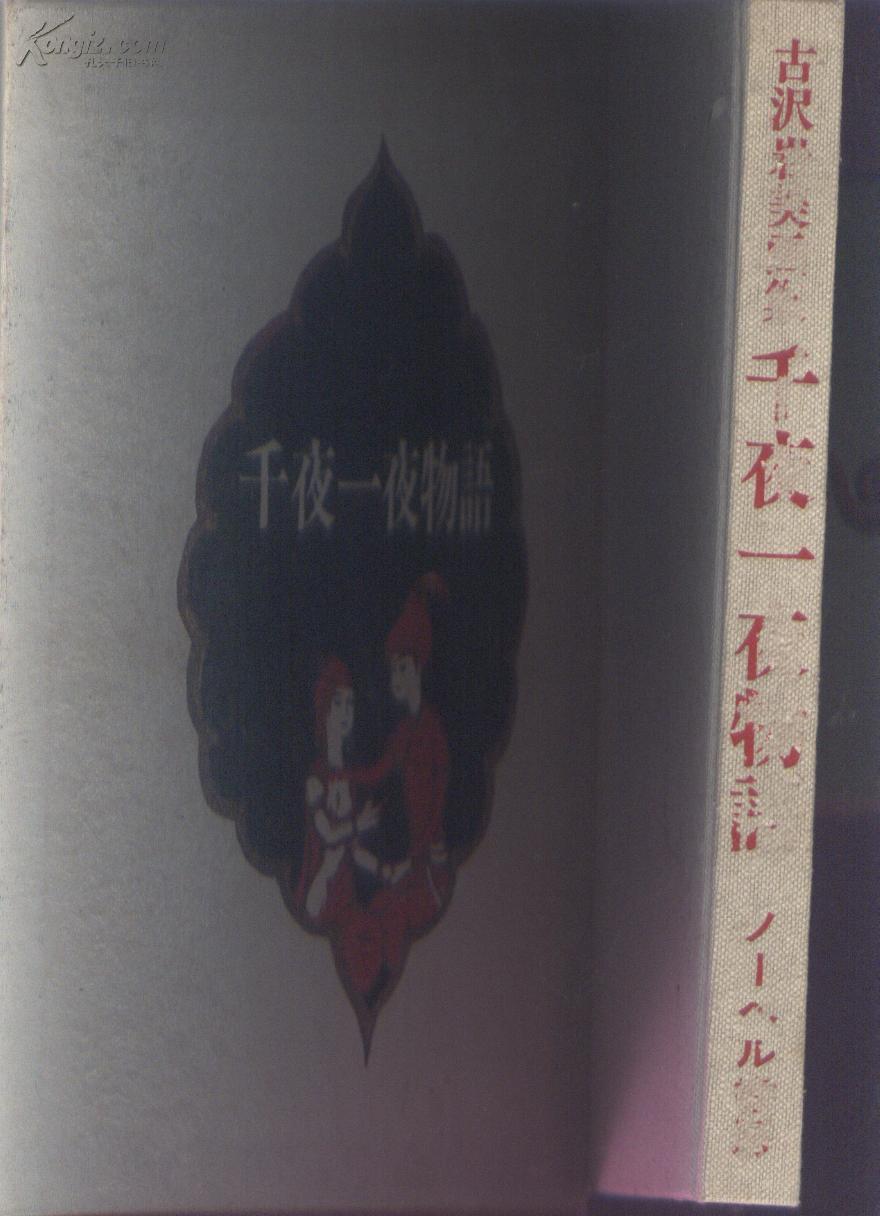 Kongfz.com
千夜一夜物語
古沢岩美 千夜一夜物語 ノーベル